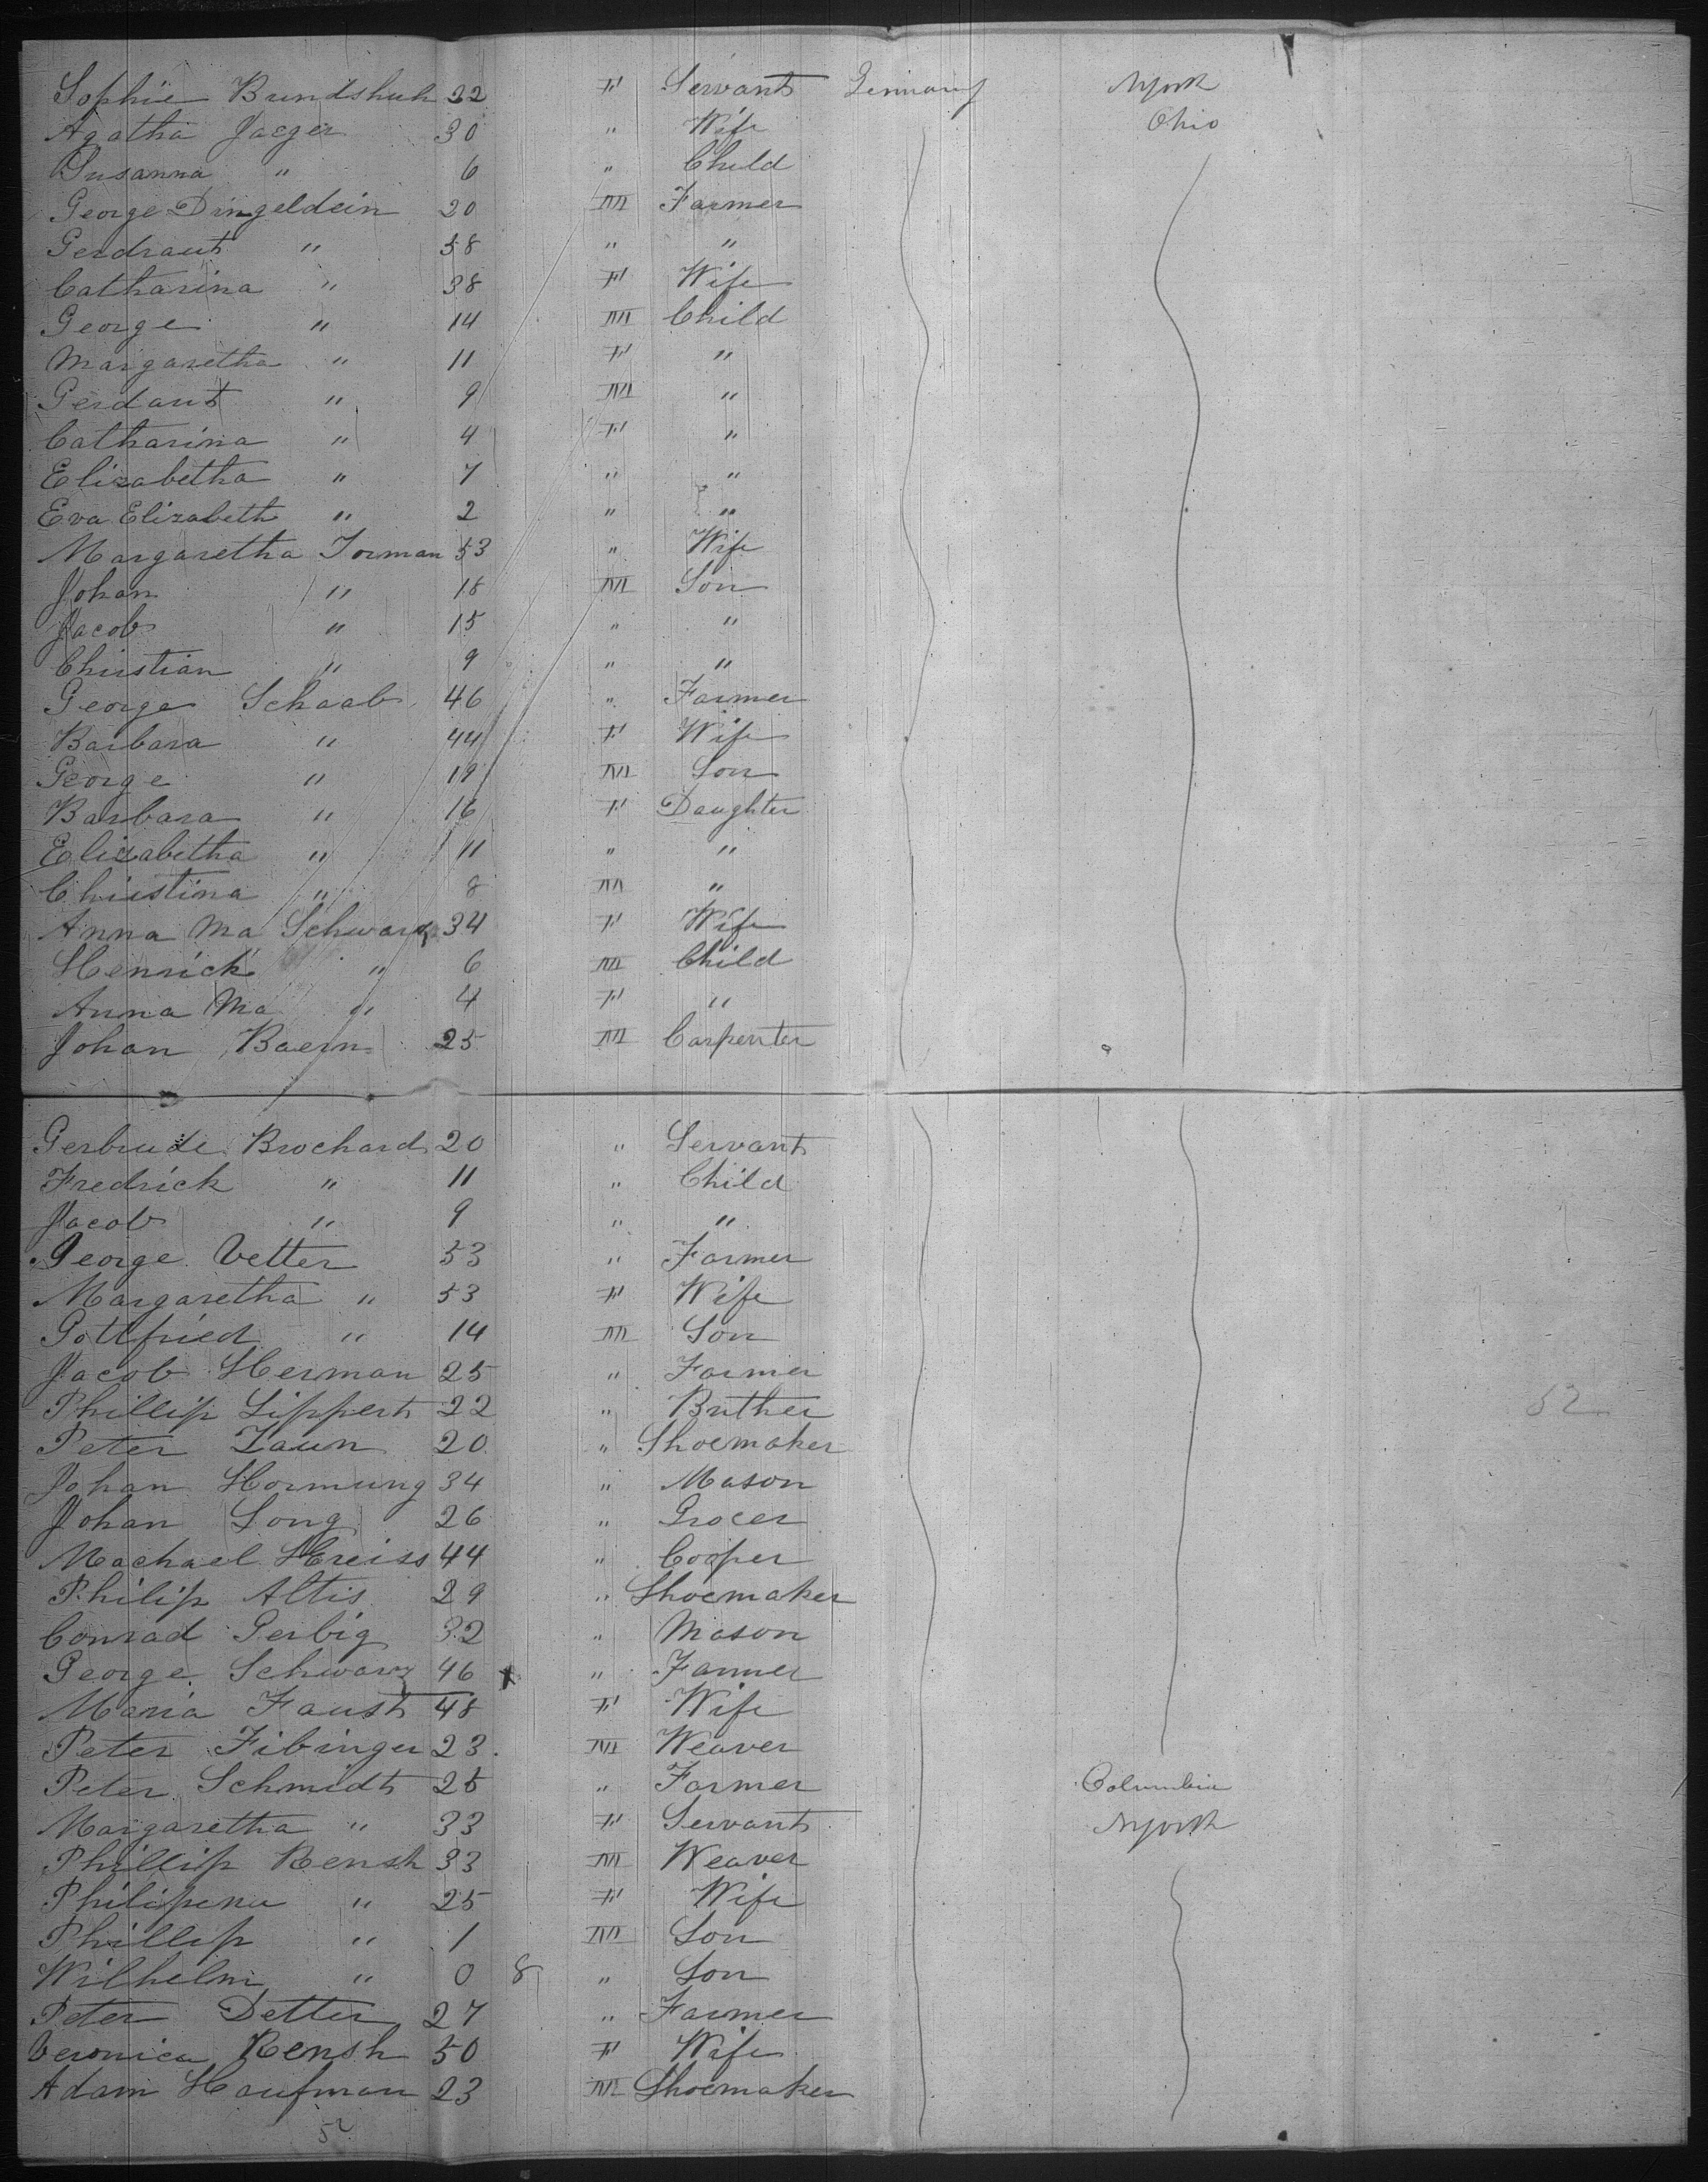 Sophie Bundshuh 22 F Servant Germany NYork
Agatha Jaeger 30 " Wife Ohio
Susanna " 6 " Child
George Dingeldein 20 M Farmer
Gerdraut " 58 " "
Catharina " 38 F Wife
George " 14 M Child
Margaretha " 11 F "
Gerdaut " 9 M "
Catharina " 4 F "
Elizabetha " 7 " "
Eva Elizabeth " 2 " "
Margaretha Jorman 53 " Wife
Johan " 18 M Son
Jacob " 15 " "
Christian " 9 " "
George Schaab 46 " Farmer
Barbara " 44 F Wife
George " 19 M Son
Barbara " 16 F Daughter
Elizabetha " 11 " "
Christina " 8 M "
Anna Ma Schwarz 34 F Wife
Henrick " 6 M Child
Anna Ma " 4 F "
Johan Baern 25 M Carpenter
Gertrude Brochard 20 " Servant
Fredrick " 11 " Child
Jacob " 9 " "
George Vetter 53 " Farmer
Margaretha " 53 F Wife
Gottfried " 14 M Son
Jacob Herman 25 " Farmer
Phillip Lippert 22 " Buther 52
Peter Zaun 20 " Shoemaker
Johan Hormung 34 " Mason
Johan Long 26 " Grocer
Machael Heiss 44 " Cooper
Philip Altis 29 " Shoemaker
Conrad Gerbig 32 " Mason
George Schwarz 46 x " Farmer
Maria Faust 48 F Wife
Peter Fibinger 23 M Weaver
Peter Schmidt 25 " Farmer Columbia
Margaretha " 33 F Servant NYork
Phillip Rensh 33 M Weaver
Philipena " 25 F Wife
Phillip " 1 M Son
Wilhelm " 0 8 " Son
Peter Detter 27 " Farmer
Veronica Rensh 50 F Wife
Adam Haufman 23 M Shoemaker
52